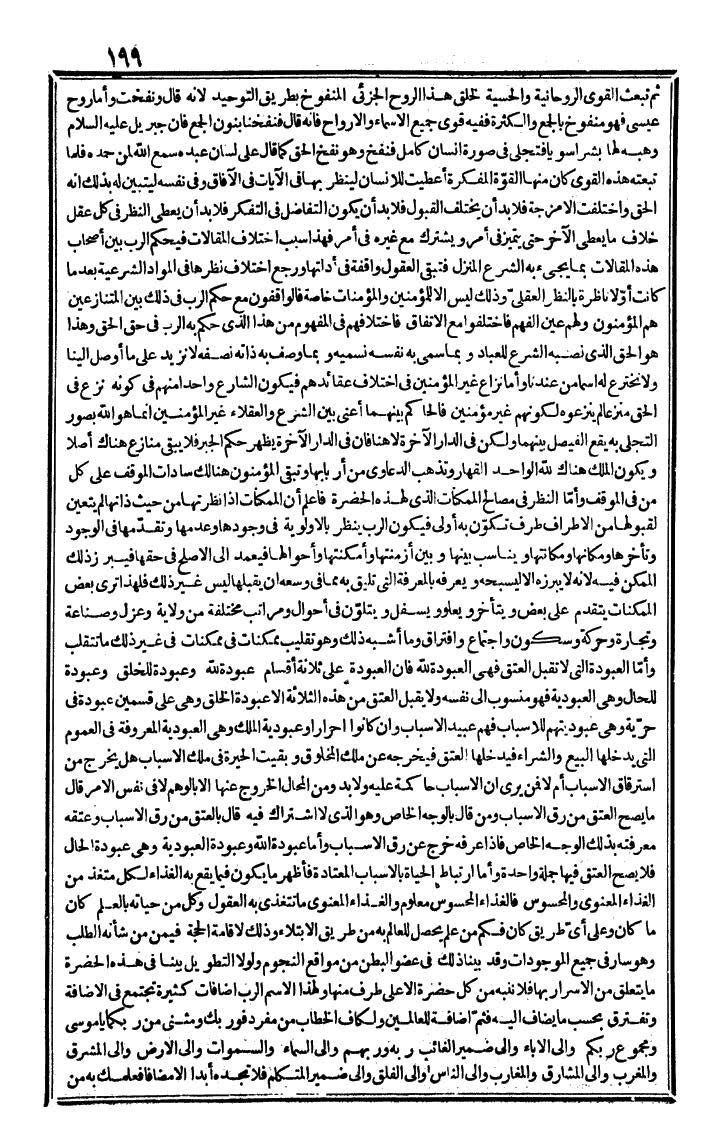 ١٩٩
ثم تبعث القوى الروحانية والحسية لخلق هذا الروح الجزئى المنفوخ بطريق التوحيد لانه قال ونفخت وأماروح
عيسى فهو منفوخ بالجمع والكثرة ففيه قوى جميع الاسماء والارواح فانه قال فنفخنا بنون الجمع فان جبريل عليه السلام
وهبه لها بشرا سويا فتجلى فى صورة انسان كامل فنفخ وهو نفخ الحق كما قال على لسان عبده سمع الله لمن حمده فلما
تبعته هذه القوى كان منها القوّة المفكرة أعطيت للانسان لينظر بها فى الآيات فى الآفاق وفى نفسه ليتبين له بذلك انه
الحق واختلفت الامزجة فلا بد أن يختلف القبول فلا بد أن يكون التفاضل فى التفكر فلا بد أن يعطى النظر فى كل عقل
خلاف ما يعطى الآخر حتى يتميز فى أمر ويشترك مع غيره فى أمر فهذا سبب اختلاف المقالات فيحكم الرب بين أصحاب
هذه المقالات بما يجىء به الشرع المنزل فتبقى العقول واقفة فى أدلتها ورجع اختلاف نظرها فى المواد الشرعية بعد ما
كانت أوّلا ناظرة بالنظر العقلىّ وذلك ليس الا للمؤمنين والمؤمنات خاصة فالواقفون مع حكم الرب فى ذلك بين المتنازعين
هم المؤمنون ولهم عين الفهم فاختلفوا مع الاتفاق فاختلافهم فى المفهوم من هذا الذى حكم به الرب فى حق الحق وهذا
هو الحق الذى نصبه الشرع للعباد وبما سمى به نفسه نسميه وبما وصف به ذاته نصفه لا نزيد على ما أوصل الينا
ولا نخترع له اسما من عندنا وأما نزاع غير المؤمنين فى اختلاف عقائدهم فيكون الشارع واحدا منهم فى كونه نزع فى
الحق منزعا لم ينزعوه لكونهم غير مؤمنين فالحاكم بينهما أعنى بين الشرع والعقلاء غير المؤمنين انما هو الله بصور
التجلى به يقع الفيصل بينهما ولكن فى الدار الآخرة لا هنا فان فى الدار الآخرة يظهر حكم الجبر فلا يبقى منازع هناك أصلا
ويكون الملك هناك لله الواحد القهار وتذهب الدعاوى من أربابها وتبقى المؤمنون هنالك سادات الموقف على كل
من فى الموقف وأمّا النظر فى مصالح الممكنات الذى لهذه الحضرة فاعلم أن الممكنات اذا نظرتها من حيث ذاتها لم يتعين
لقبولها من الاطراف طرف تكون به أولى فيكون الرب ينظر بالاولوية فى وجودها وعدمها وتقدّمها فى الوجود
وتأخرها ومكانها ومكانتها ويناسب بينها وبين أزمنتها وأمكنتها وأحوالها فيعمد الى الاصلح فى حقها فيبرز ذلك
الممكن فيه لانه لا يبرزه الا ليسبحه ويعرفه بالمعرفة التى تليق به مما فى وسعه ان يقبلها ليس غير ذلك فلهذا ترى بعض
الممكنات يتقدم على بعض ويتأخر ويعلو ويسفل ويتلوّن فى أحوال ومراتب مختلفة من ولاية وعزل وصناعة
وتجارة وحركة وسكون واجتماع وافتراق وما أشبه ذلك وهو تقليب ممكنات فى ممكنات فى غير ذلك ما تتقلب
وأمّا العبودة التى لا تقبل العتق فهى العبودة لله فان العبودة على ثلاثة أقسام عبودة لله وعبودة للخلق وعبودة
للحال وهى العبودية فهو منسوب الى نفسه ولا يقبل العتق من هذه الثلاثة الا عبودة الخلق وهى على قسمين عبودة فى
حرّية وهى عبوديتهم للاسباب فهم عبيد الاسباب وان كانوا احرارا وعبودية الملك وهى العبودية المعروفة فى العموم
التى يدخلها البيع والشراء فيدخلها العتق فيخرجه عن ملك المخلوق وبقيت الحيرة فى ملك الاسباب هل يخرج من
استرقاق الاسباب أم لا فمن يرى ان الاسباب حاكمة عليه ولا بد ومن المحال الخروج عنها الا بالوهم لا فى نفس الامر قال
ما يصح العتق من رق الاسباب ومن قال بالوجه الخاص وهو الذى لا اشتراك فيه قال بالعتق من رق الاسباب وعتقه
معرفته بذلك الوجه الخاص فاذا عرفه خرج عن رق الاسباب وأما عبودة الله وعبودة العبودية وهى عبودة الحال
فلا يصح العتق فيها جملة واحدة وأما ارتباط الحياة بالاسباب المعتادة فأظهر ما يكون فيما يقع به الغذاء لكل متغذ من
الغذاء المعنوى والمحسوس فالغذاء المحسوس معلوم والغذاء المعنوى ما تتغذى به العقول وكل من حياته بالعلم كان
ما كان وعلى أىّ طريق كان فكم من علم يحصل للعالم به من طريق الابتلاء وذلك لاقامة الحجة فيمن من شأنه الطلب
وهو سار فى جميع الموجودات وقد بينا ذلك فى عضو البطن من مواقع النجوم ولولا التطويل بينا فى هذه الحضرة
ما يتعلق من الاسرار بها فلا ننبه من كل حضرة الا على طرف منها ولهذا الاسم الرب اضافات كثيرة تجتمع فى الاضافة
وتفترق بحسب ما يضاف اليه فثم اضافة للعالمين ولكاف الخطاب من مفرد فوربك ومثنى من ربكما يا موسى
ومجموع ربكم والى الاباء والى ضمير الغائب ربه وربهم والى السماء والسموات والى الارض والى المشرق
والمغرب والى المشارق والمغارب والى الناس والى الفلق والى ضمير المتكلم فلا تجده أبدا الا مضافا فعلمك به من